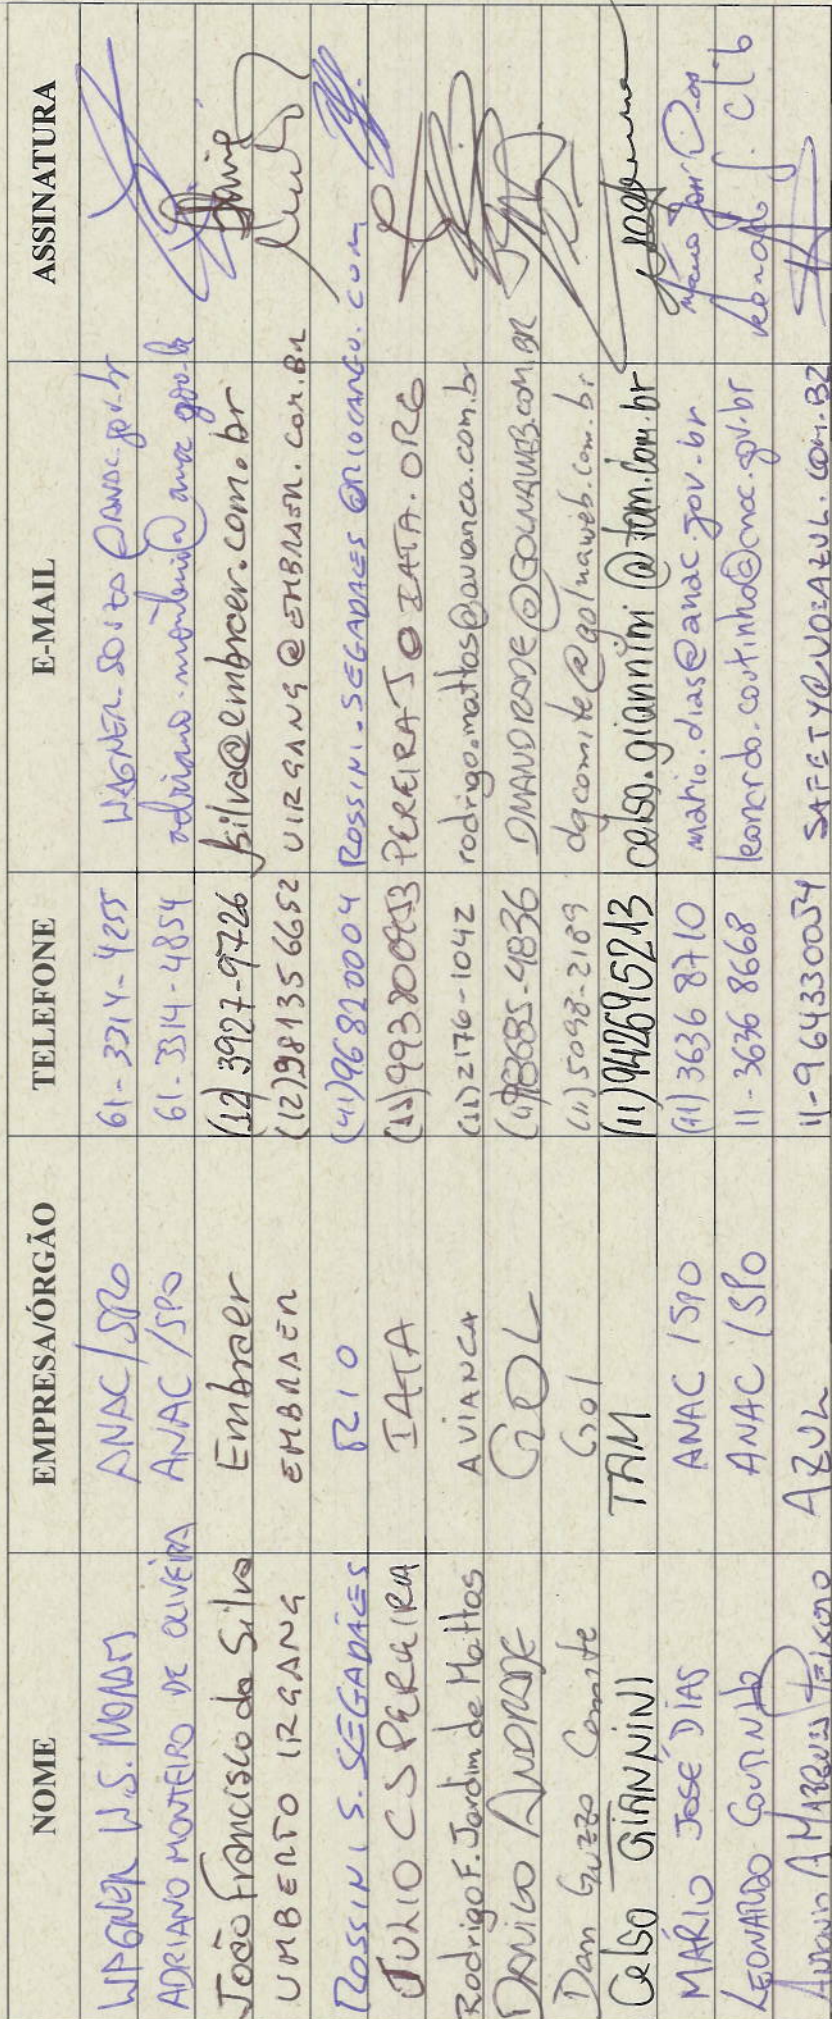 NOME EMPRESA/ÓRGÃO TELEFONE E-MAIL ASSINATURA
WAGNER W.S. ANAC/SPO 61-3314-4255
ADRIANO MONTEIRO DE OLIVEIRA ANAC/SPO 61-3314-4854 adriano.monteiro@anac.gov.br
João Francisco da Silva Embraer (12) 3927-9726 jsilva@embraer.com.br
UMBERTO IRGANG EMBRAER (12)981356652 UIRGANG@EMBRAER.COM.BR
ROSSINI S. SEGADÃES RIO (41)96820004 ROSSINI.SEGADAES@RIOCARGO.COM
JULIO CS PEREIRA IATA PEREIRAJ@IATA.ORG
Rodrigo F. Jardim de Mattos AVIANCA (11)2176-1042 rodrigo.mattos@avianca.com.br
DANILO ANDRADE GOL DMANDRADE@GOLNAWEB.COM.BR
Dan Guzzo Comite Gol (11)5098-2189 dgcomite@golnaweb.com.br
Celso GIANNINI TAM (11)942695213 celso.giannini@tam.com.br
MÁRIO JOSÉ DIAS ANAC/SPO (11) 3636 8710 mario.dias@anac.gov.br Mário José Dias
LEONARDO COUTINHO ANAC/SPO 11-3636 8668 leonardo.coutinho@anac.gov.br
ANTONIO A MARQUES PEIXOTO AZUL 11-964330054 SAFETY@VOEAZUL.COM.BR